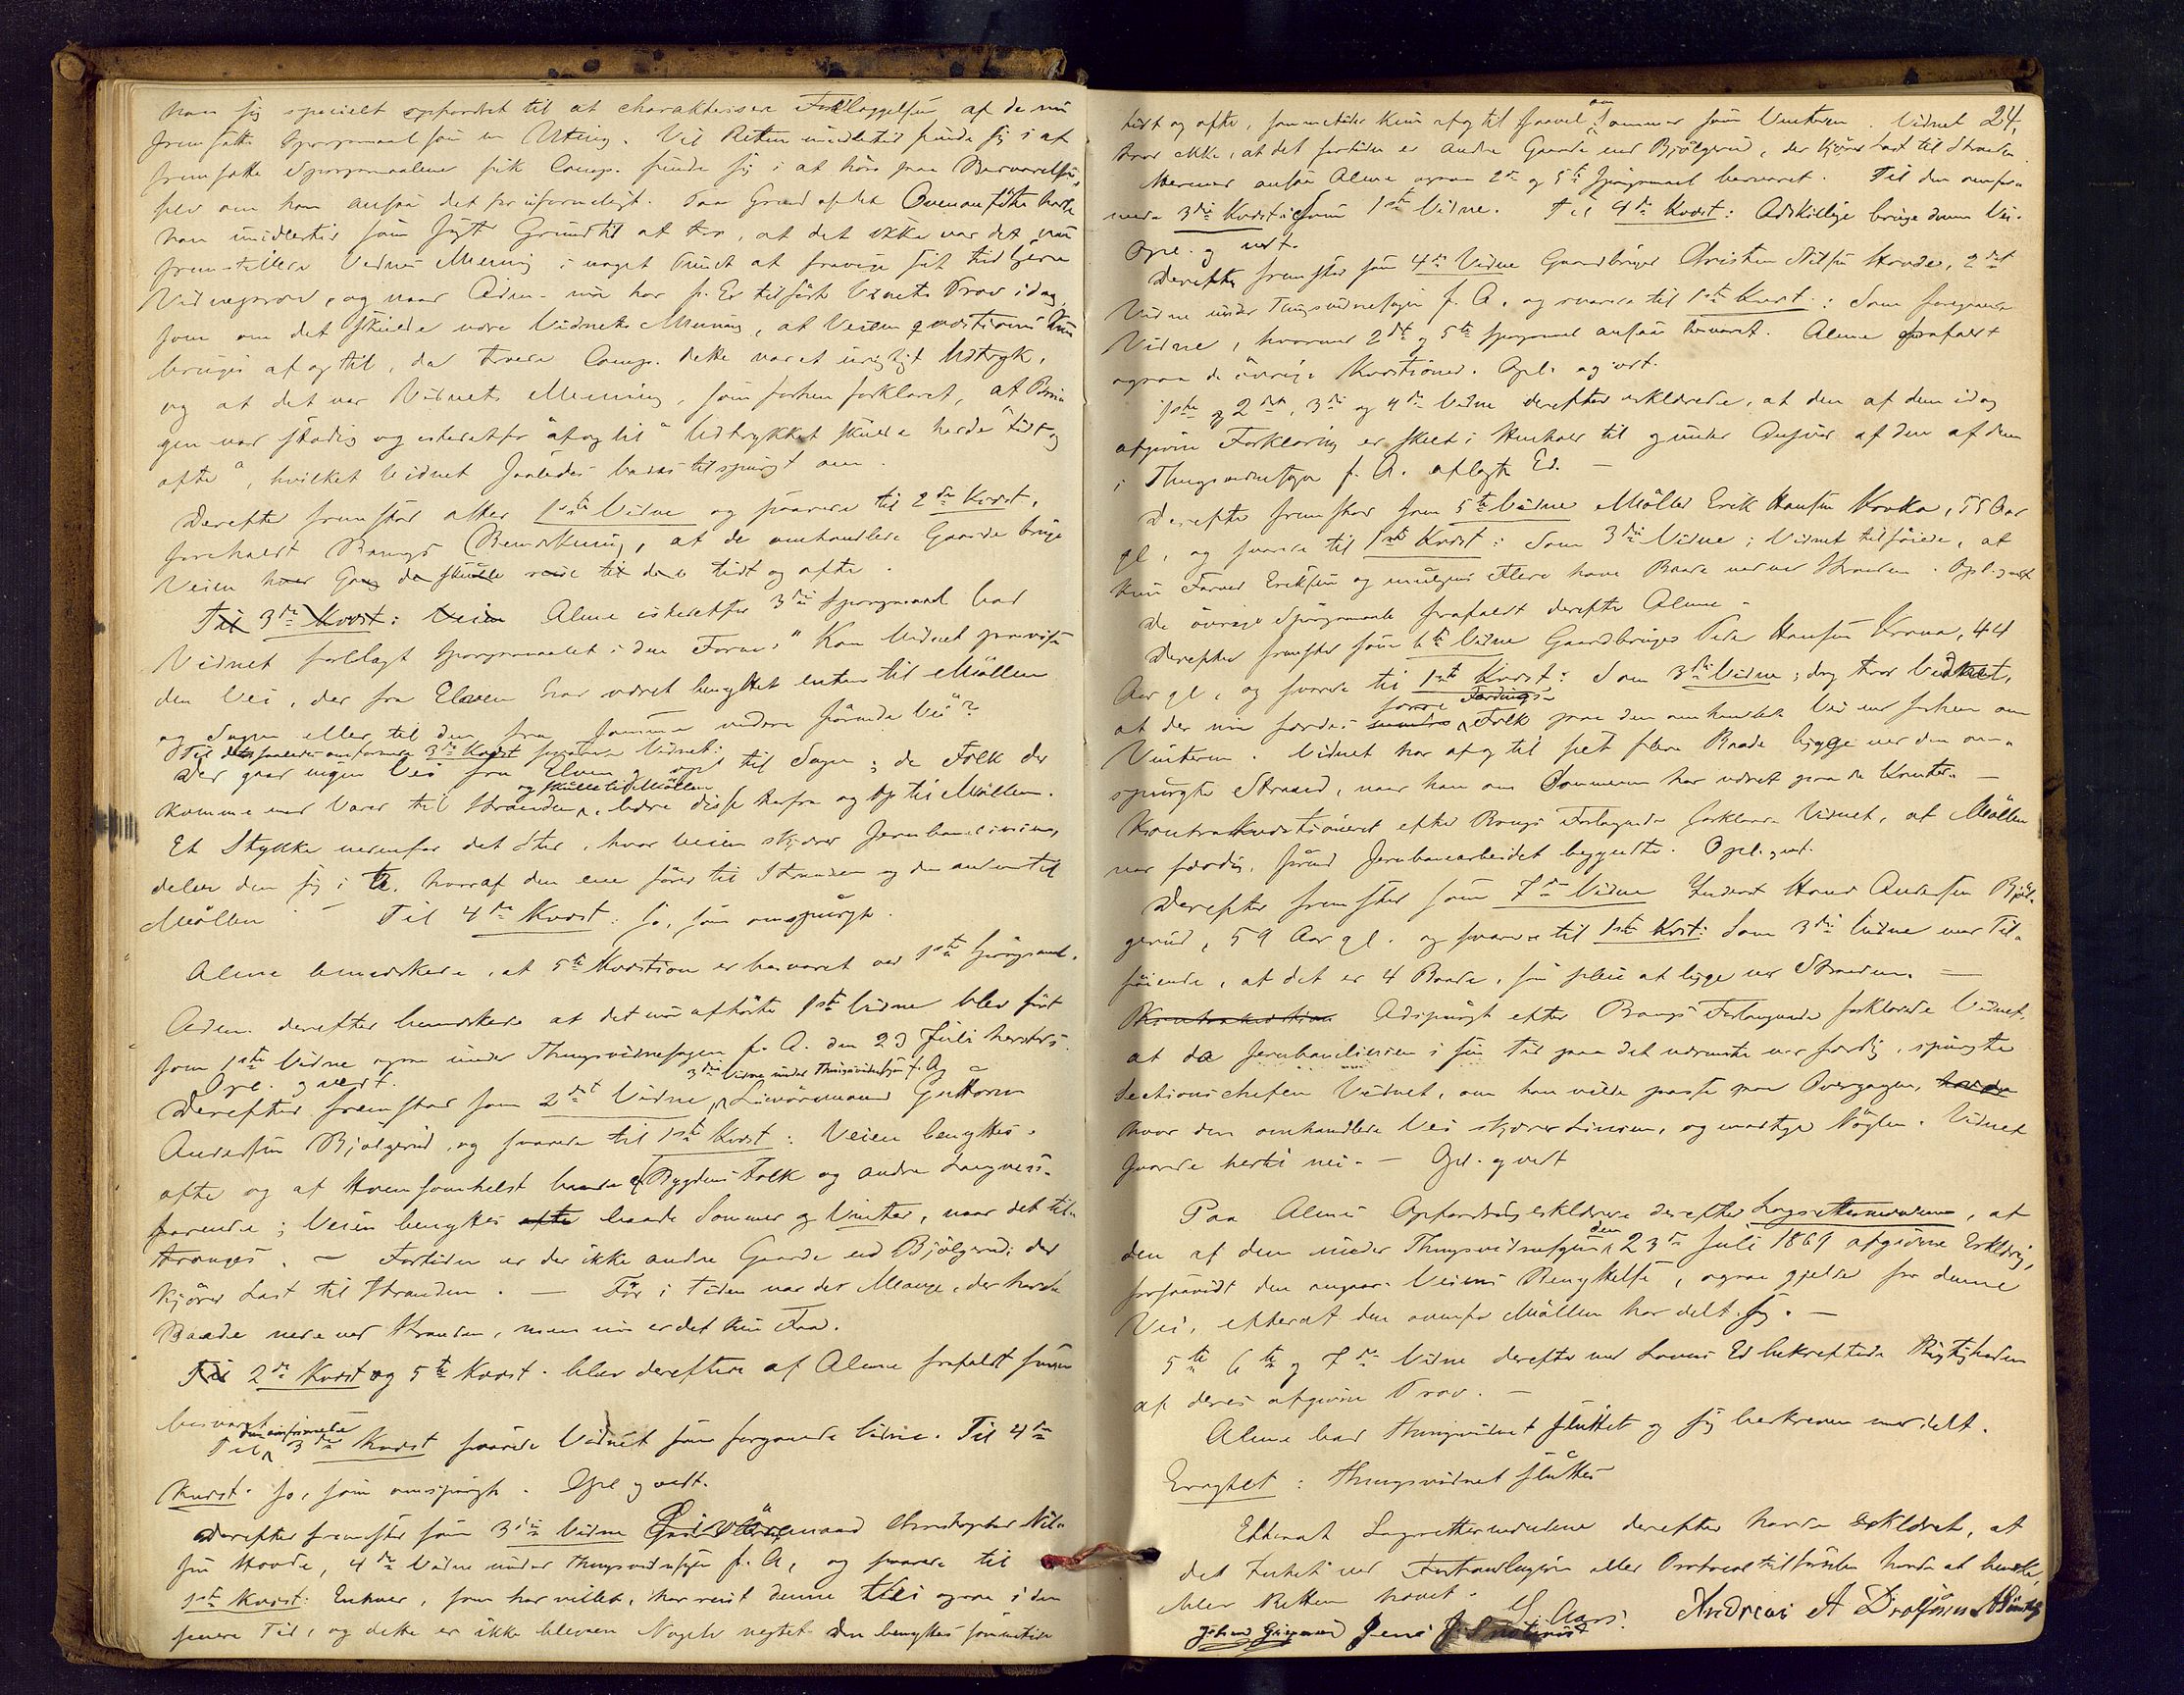 han sig specielt opfordret til at charakterisere Forelæggelsen af de nu
fremsatte Spørgsmaal som en Uting. Vil Retten imidlertid finde sig i at
fremsætte Spørgsmaalene fik Comp. finde sig i at høre paa Besvarelsen,
selv om han ansaa det for uformeligt. Paa Grund af det Ovenanførte havde
han imidlertid som sagt Grund til at tro, at det ikke var det nu
fremstillede Vidnes Mening i noget Punct at fravige sit tidligere
Vidneprov, og naar Adm. nu har f. Ex tilført Vidnets Prov idag,
som om det skulde være Vidnets Mening, at Veien qvæstionis kun
bruges af og til, da troede Comp. dette var et urigtigt Udtryk,
og at det var Vidnets Mening, som forhen forklaret, at Brugen
var stadig og istedetfor "af og til" Udtrykket skulde hedde "tidt og
ofte", hvilket Vidnet saaledes bedes tilspurgt om.
Derefter fremstod atter 1ste Vidne og svarede til 2det Kvæst.
foreholdt Bangs Bemærkning, at de omhandlede Gaarde bruge
Veien hver Gang de skulle reise til de tidt og ofte.
Til 3die Kvæst: Veien Alme istedetfor 3die Spørgsmaal bad
Vidnet forelagt Spørgsmaalet i den Form: "Kan Vidnet paavise
den Vei, der fra Elven har været benyttet enten til Møllen
og Sagen eller til den fra samme videre førende Vei"?
Til det saaledes omformede 3die Kvæst svarede Vidnet:
Der gaar ingen Vei fra Elven op til Sagen; de Folk der
og skulle til Møllen
komme med Varer til Stranden, bære disse derfra og op til Møllen.
Et Stykke nedenfor det Sted, hvor Veien skjærer Jernbanelinien,
deler den sig i to, hvoraf den ene fører til Stranden og den anden til
Møllen – Til 4de Kvæst: Ja, som omspurgt.
Alme bemærkede, at 5te Kvæstion er besvaret ved 1ste Spørgsmaal.
Adm. derefter bemærkede at det nu afhørte 1ste Vidne blev ført
som 1ste Vidne ogsaa under Thingsvidnesagen f. A. den 23 Juli
Opl. og vedt.
3die Vidne under Thingsvidnesagen f. A,
Derefter fremstod som 2det Vidne, Guttorm
Andersen Bjølgerud, og svarede til 1ste Kvæst: Veien benyttes
ofte og af Hvemsomhelst baade af Bygdens Folk og andre Langveisfarende;
Veien benyttes ofte baade Sommer og Vinter, naar det tiltrænges.
– Fortiden er der ikke andre Gaarde end Bjølgerud, der
kjører Last til Stranden. – Før i Tiden var der Mange, der havde
Baade nede ved Stranden, men nu er det kun Faa.
Til 2det Kvæst og 5te Kvæst. blev derefter af Alme frafaldt som
besvaret
den omformede
Til 3die Kvæst svarede Vidnet som foregaaende Vidne. Til 4de
Kvæst: Ja, som omspurgt. Opl og vedt.
Derefter fremstod som 3die Vidne Christopher Nilsen
Hovde, 4de Vidne under Thingsvidnesagen f. A, og svarede til
1ste Kvæst: Enhver, som har villet, har reist denne Vei ogsaa i den
senere Tid, og dette er ikke bleven Nogen negtet. Den benyttes sommetider
24,
tidt og ofte, sommetider kun af og til saavel om Sommeren som Vinteren. Vidnet
tror ikke, at det fortiden er andre Gaarde end Bjølgerud, der kjører Last til Stranden.
Hermed ansaa Alme ogsaa 2det og 5te Spørgsmaal besvaret. Til den omformede
3die Kvæst: Som 1ste Vidne. Til 4de Kvæst: Adskillige bruge denne Vei.
Opl. og vedt.
Derefter fremstod som 4de Vidne Gaardbruger Christen Nilsen Hovde, 2det
Vidne under Thingsvidnesagen f. A. og svarede til 1ste Kvæst.: Som foregaaende
Vidne, hvormed 2det og 5te Spørgsmaal ansaaes besvaret. Alme frafaldt
ogsaa de øvrige Kvæstioner. Opl. og vedt.
1ste og 2det, 3die og 4de Vidne derefter erklærede, at den af dem idag
afgivne Forklaring er skeet i Henhold til og under Ansvar af den af dem
i Thingsvidnesagen f. A. aflagte Ed. –
Derefter fremstod som 5te Vidne Møller Erik Hansen, 55 Aar
gl, og svarede til 1ste Kvæst: Som 3die Vidne; Vidnet tilføiede, at
kun Eriksen og muligens Flere have Baade ved Stranden. Opl. og vedt
De øvrige Spørgsmaale frafaldt derefter Alme –
Derefter fremstod som 6te Vidne Gaardbruger Peder Hansen, 44
Aar gl, og svarede til 1ste Kvæst: Som 3die Vidne; dog tror Vidnet,
at der nu færdes mindre Folk paa den omhandlede Vei end forhen om
Vinteren. Vidnet har af og til seet flere Baade ligge ved den omspurgte
Strand, naar han om Sommeren har været paa de Kanter. –
Kontrakvæstioneret efter Bangs Forlangende forklarede Vidnet, at Møllen
var færdig, førend Jernbanearbeidet begyndte. Opl. og vedt.
Derefter fremstod som 7de Vidne Inderst Hans Andersen Bjølgerud,
59 Aar gl. og svarede til 1ste Kvæst: Som 3die Vidne med Tilføiende,
at det er 4 Baade, som pleie at ligge ved Stranden. –
Kontrakvæstion Adspurgt efter Bangs Forlangende forklarede Vidnet,
at da Jernbanelinien i sin Tid paa det nærmeste var færdig, spurgte
Sectionschefen Vidnet, om han vilde passe paa Overgangen,
hvor den omhandlede Vei skjærer Linien, og modtage Nøglen. Vidnet
svarede hertil nei. – Opl. og vedt
Paa Almes Opfordring erklærede derefter Lagrettemændene, at
den af dem under Thingsvidnesagen den 23de Juli 1869 afgivne Erklæring,
forsaavidt den angaar Veiens Benyttelse, ogsaa gjelder for denne
Vei, efterat den ovenfor Møllen har delt sig. –
5te 6te og 7de Vidne derefter med Lovens Ed bekræftede Rigtigheden
af deres afgivne Prov. –
Alme bad Thingsvidnet sluttet og sig beskreven meddelt.
Eragtet: Thingsvidnet sluttes
Efterat Lagrettemændene derefter havde erklæret, at
de Intet ved Forhandlingen eller Protocoltilførslen havde at bemærke,
blev Retten hævet.
Aars. Andreas A
Jens J.